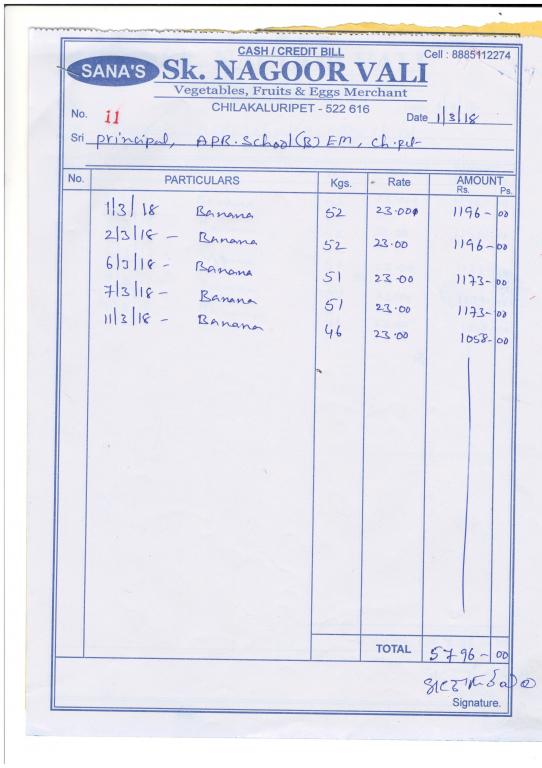 CASH / CREDIT BILL
Cell : 8885112274
SANA'S Sk. NAGOOR VALI
Vegetables, Fruits & Eggs Merchant
CHILAKALURIPET - 522 616
No. 11 Date 1/3/18
Sri principal, APR. School (B) EM, Ch.pet
No. PARTICULARS Kgs. Rate AMOUNT
Rs. Ps.
1/3/18 Banana 52 23.00 1196-00
2/3/18 - Banana 52 23.00 1196-00
6/3/18 - Banana 51 23.00 1173-00
7/3/18 - Banana 51 23.00 1173-00
11/3/18 - Banana 46 23.00 1058-00
TOTAL 5796-00
Signature.